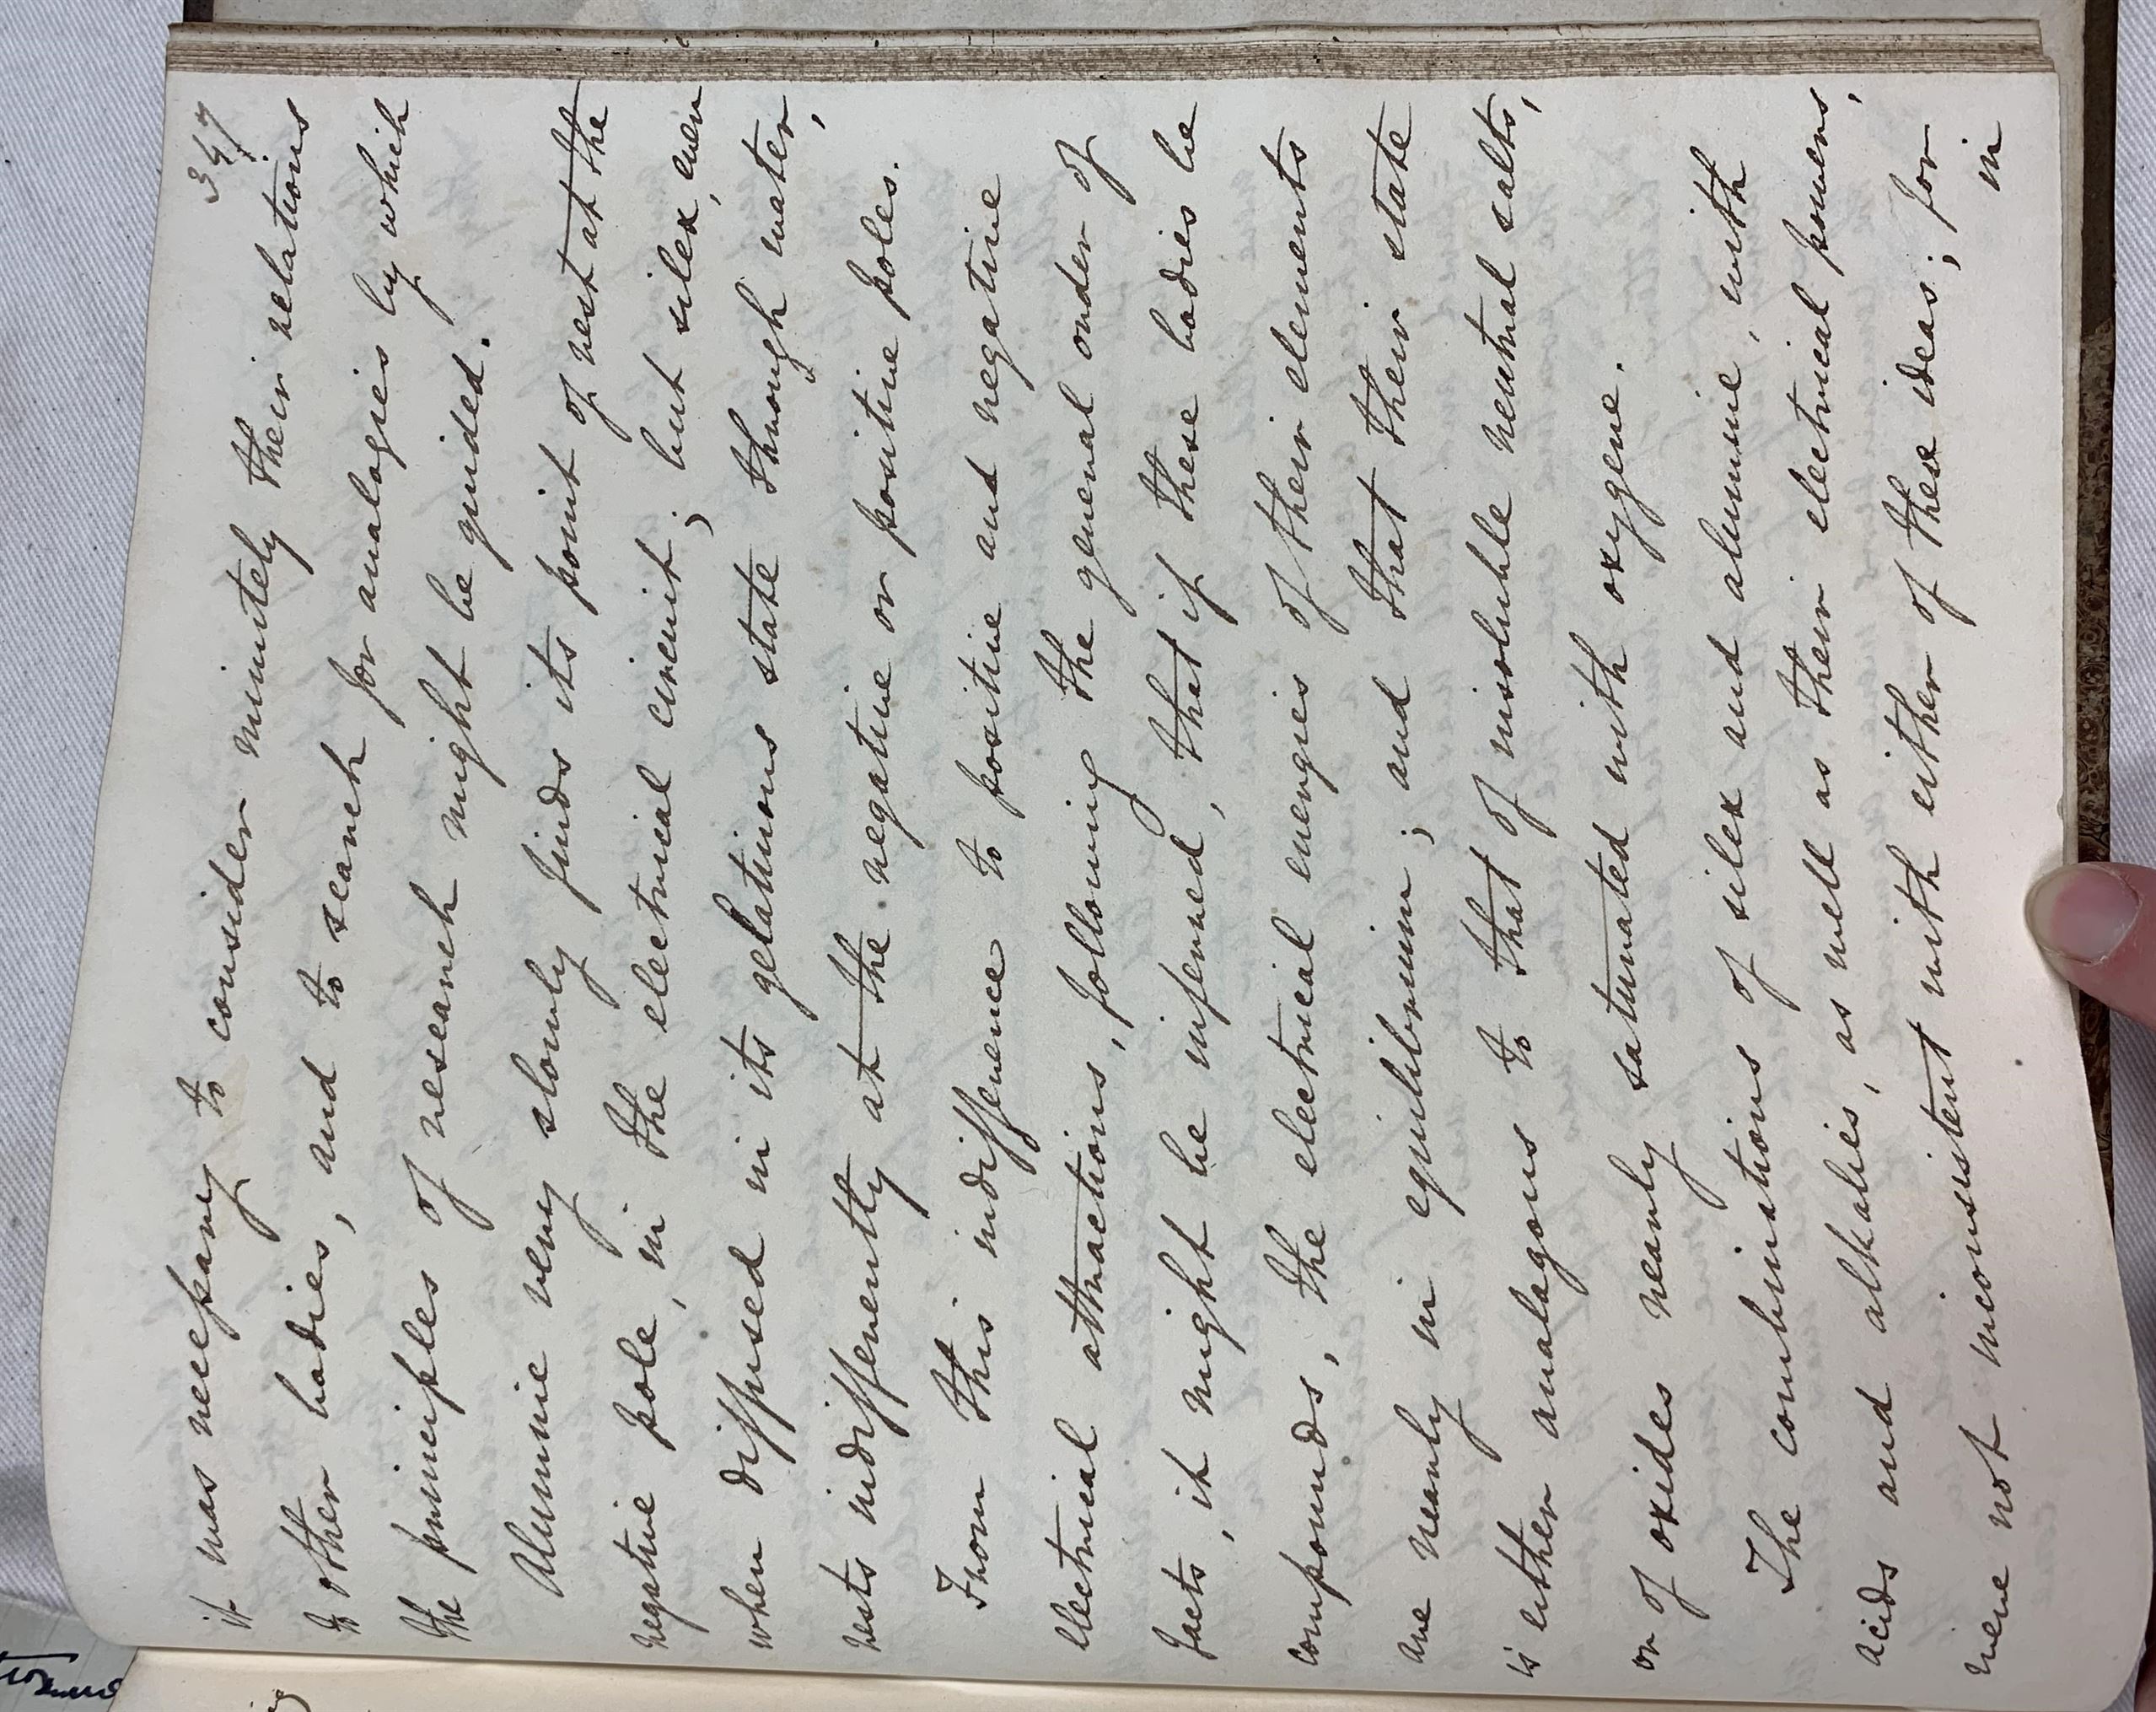 347
it was necessary to consider minutely their relations
to other bodies, and to search for analogies by which
the principles of research might be guided.
Alumine very slowly finds its point of rest at the
negative pole, in the electrical circuit; but silex, even
when diffused in its gelatinous state through water,
rests indifferently at the negative or positive poles.
From this indifference to positive and negative
electrical attractions, following the general order of
facts, it might be inferred, that if these bodies be
compounds, the electrical energies of their elements
are nearly in equilibrium; and that their state
is either analagous to that of insoluble neutral salts,
or of oxides nearly saturated with oxygene.
The combinations of silex and alumine, with
acids and alkalies, as well as their electrical powers,
were not inconsistent with either of these ideas; for
in